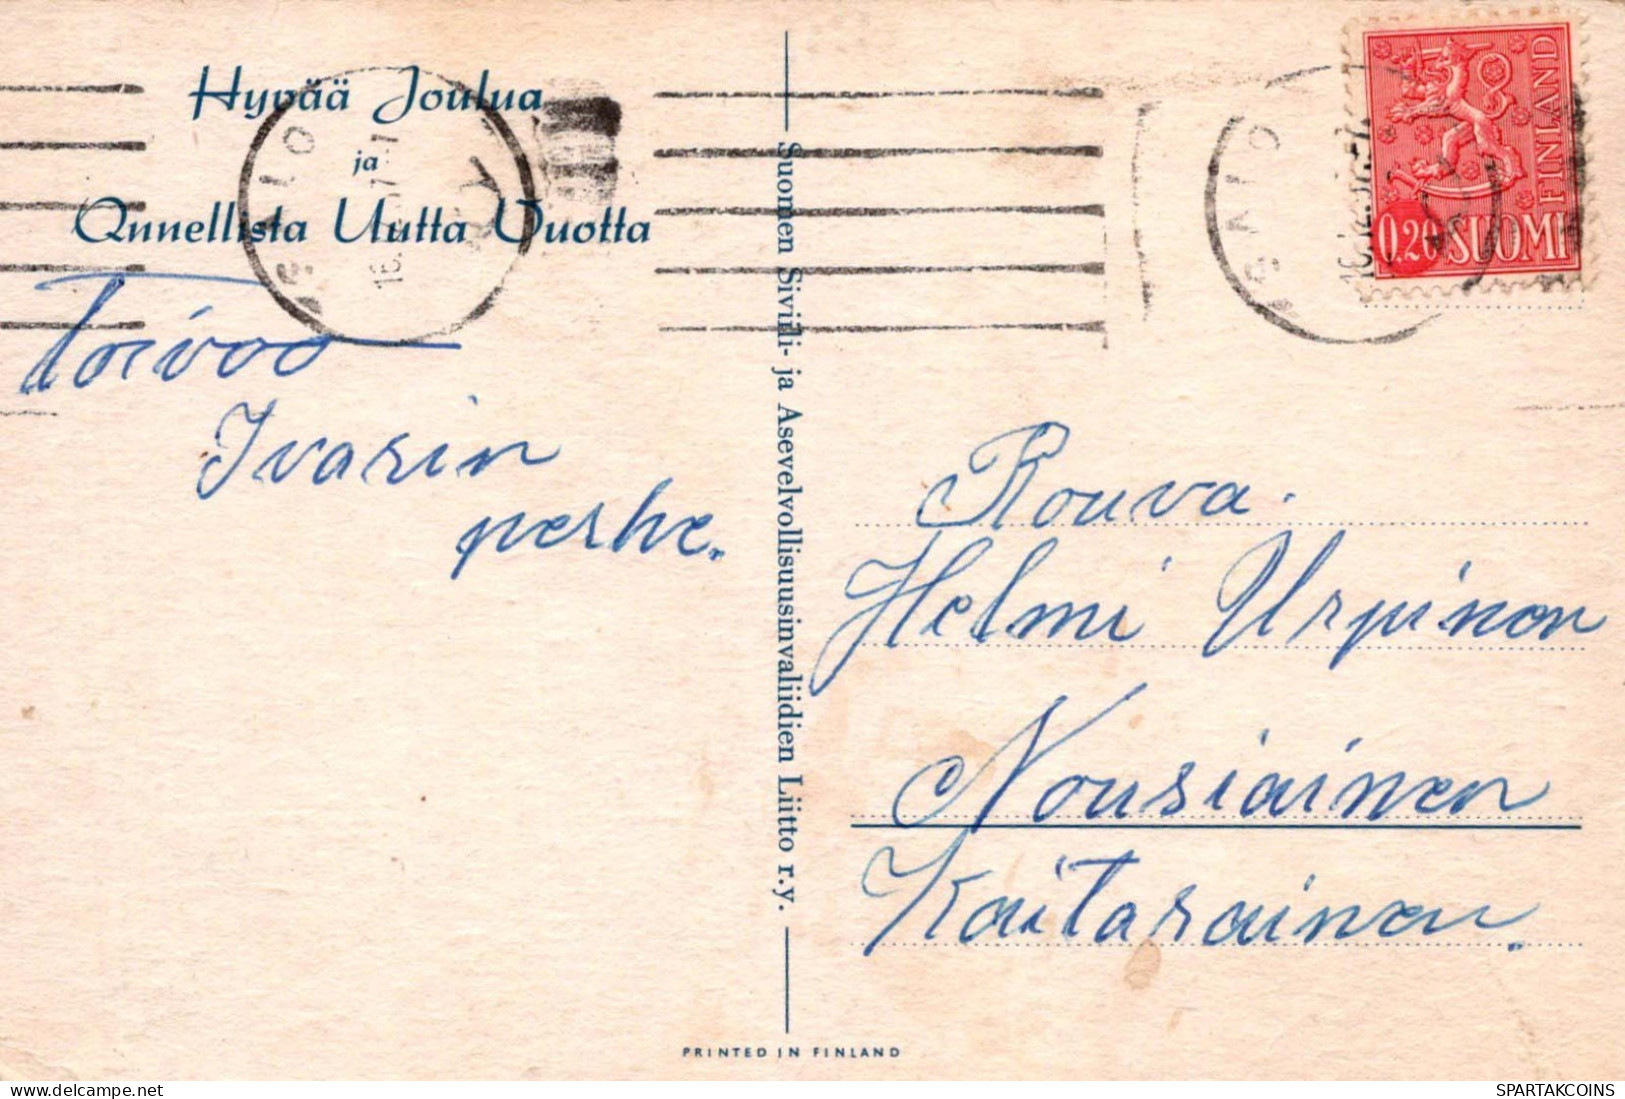 Hyvää Joulua
ja
Onnellista Uutta Vuotta
Toivoo
Ivarin
perhe.
Suomen Siviili- ja Asevelvollisuusinvaliidien Liitto r.y.
PRINTED IN FINLAND
FINLAND
0,20 SUOMI
Rouva.
Helmi Urpinon
Nousiainen
Kaitarainen.
SPARTAKCOINS